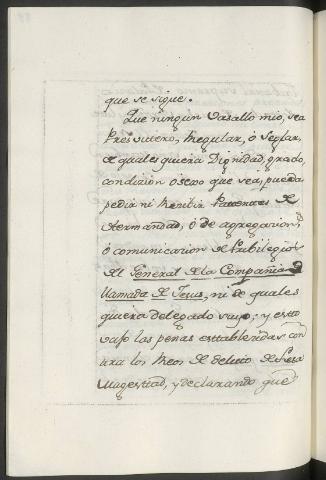 que se sigue.
Que ningun vasallo mio, sea
Presvitero, Regular, ò Seglar,
de qualesquiera Dignidad, grado,
condizion ò sexo que sea, pueda
pedir ni recivir Patentes de
Hermandad, ò de agregacion,
ò comunicacion de Privilegios
del General de la Compañia
llamada de Jesus, ni de quales
quiera delegado suyo; y estto
vajo las penas esttablecidas con
tra los Reos de delicto de Lesa
Magesttad, y declarando que